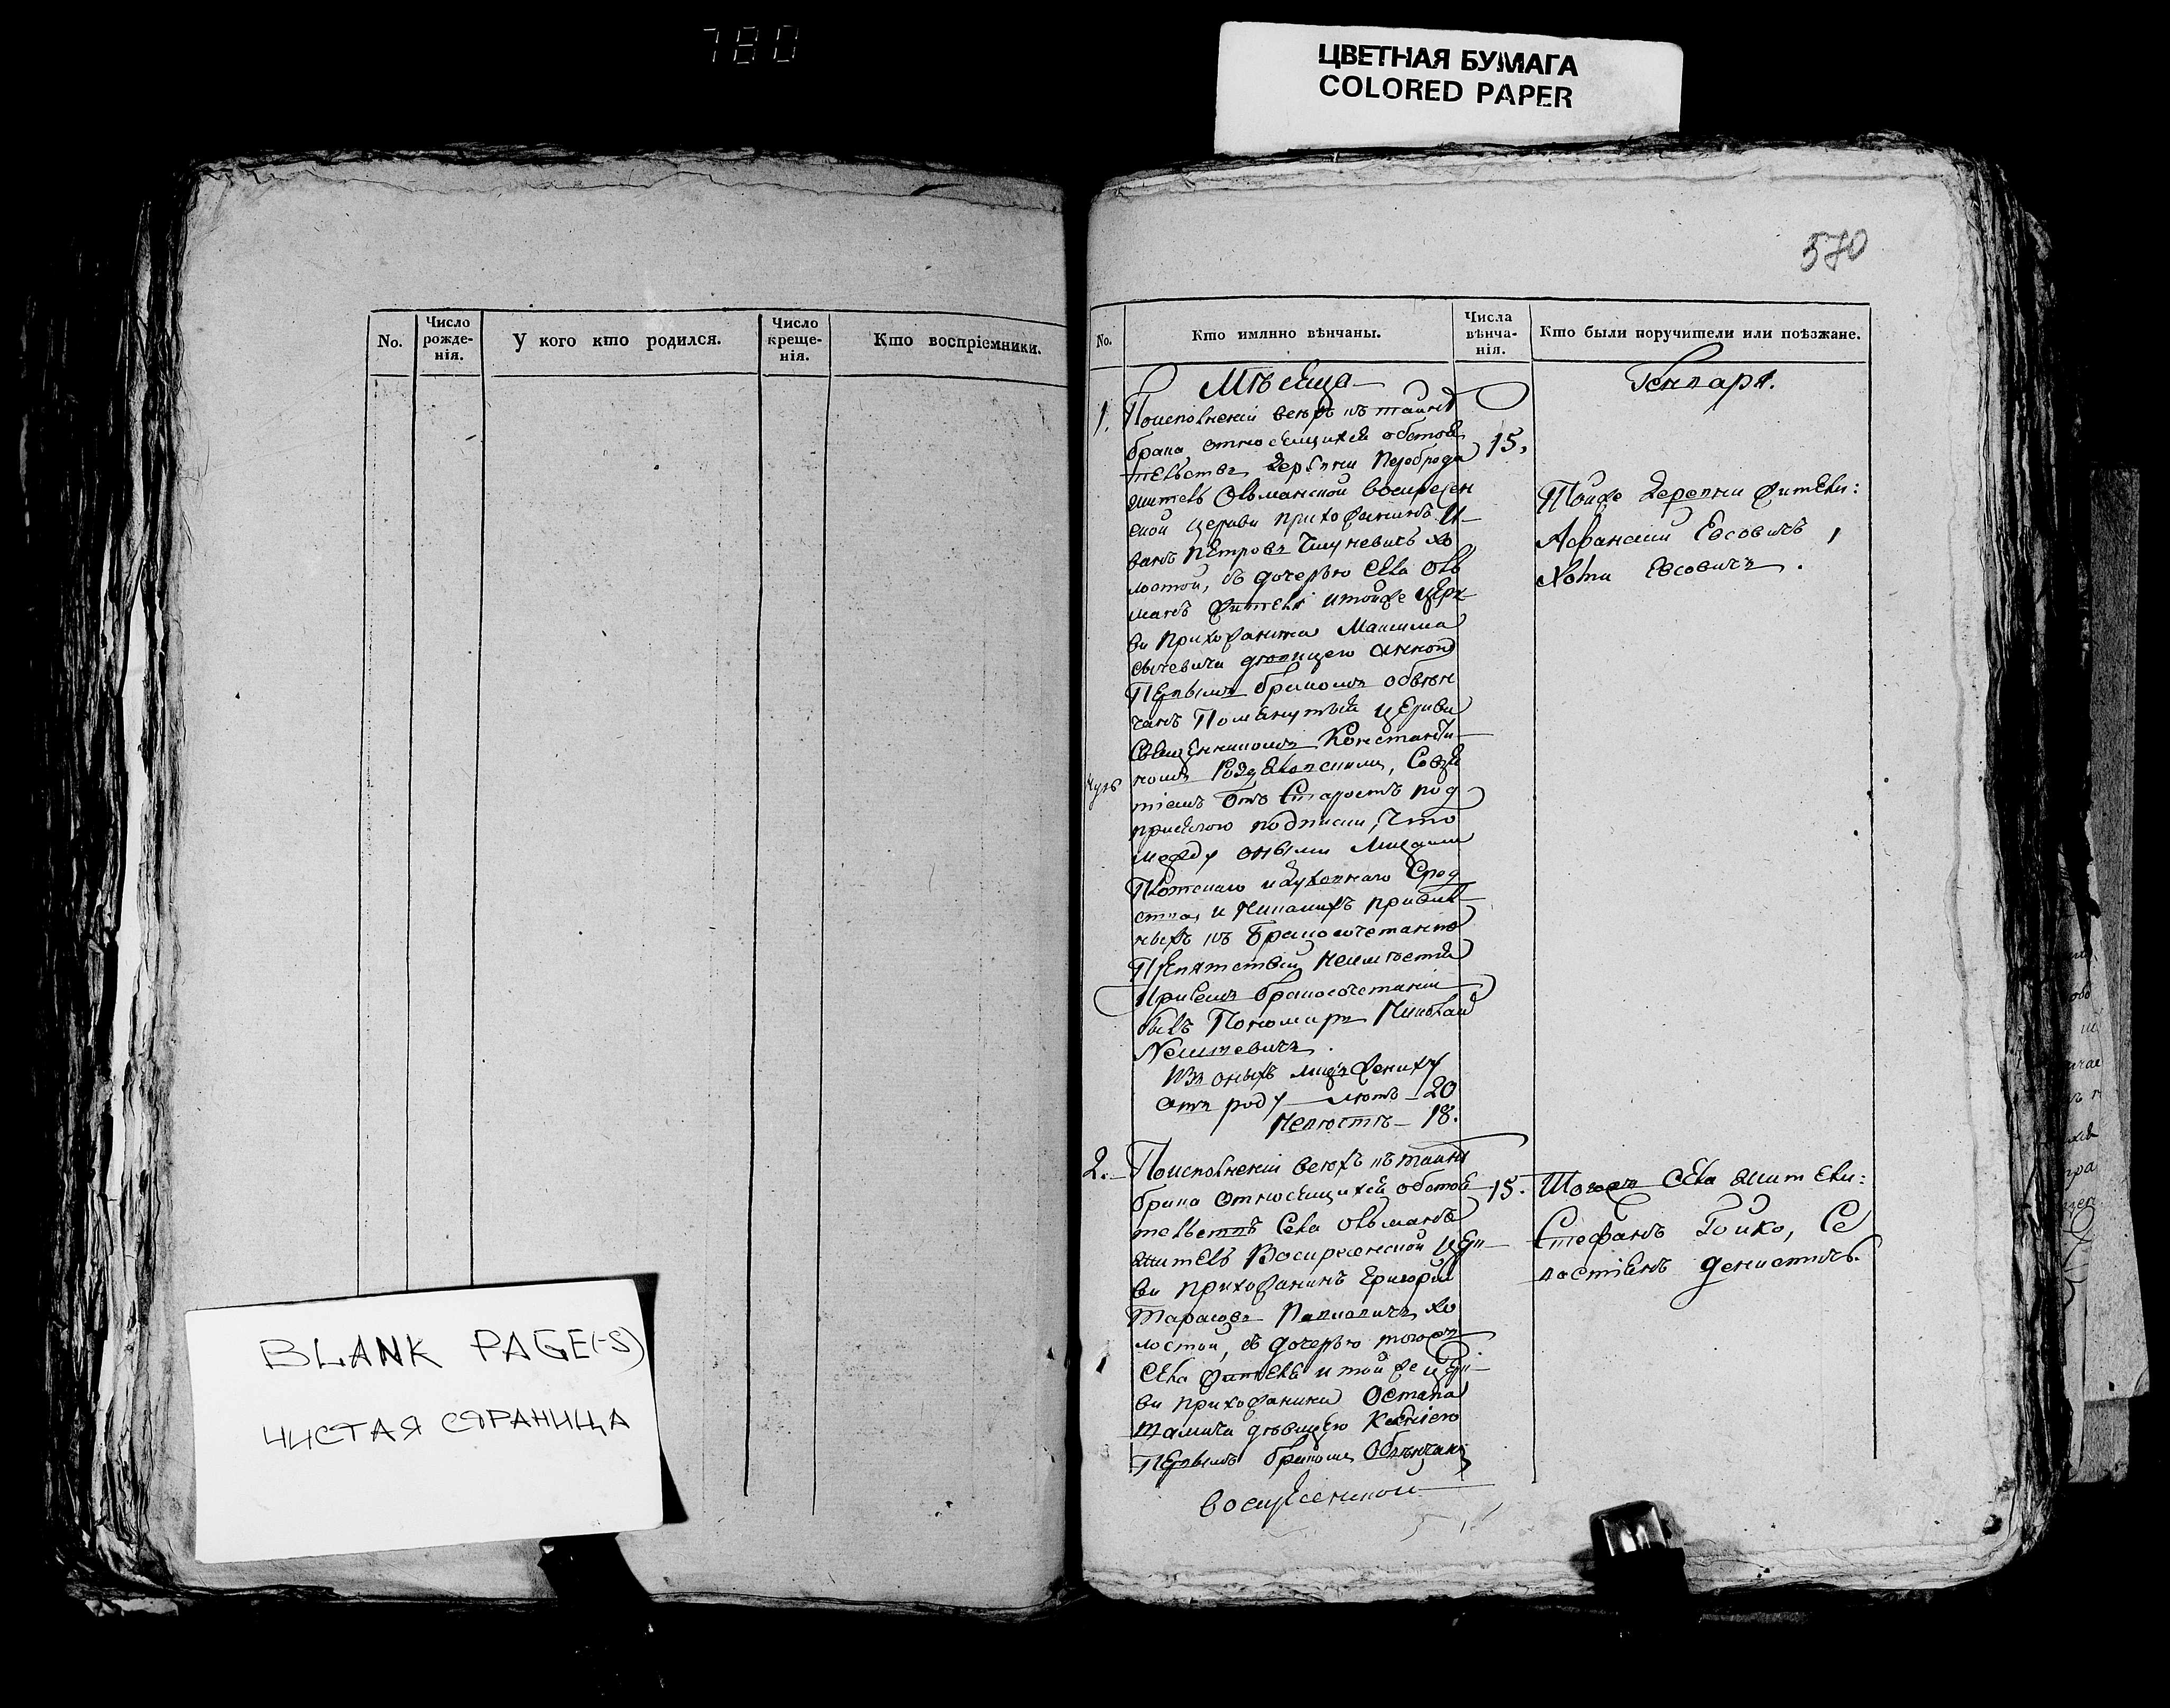 780
ЦВЕТНАЯ БУМАГА
COLORED PAPER
570
No.
Число рожденія.
У кого кто родился.
Число крещенія.
Кто воспріемники.
No.
Кто имянно вѣнчаны.
Числа вѣнчанія.
Кто были поручители или поѣзжане.
Мѣсяца
Генваря.
1.
Поисполненіи всехъ къ таинст
брака относящихся обстоя
тельствъ деревни Переброда
житель Ольманской воскресен
ской церкви прихожанинъ И
ванъ Петровъ хо
лостой, съ дочерью села Оль
манъ жителя итойже церк
ви прихожанина Максима
девицею Анною
Первымъ бракомъ обвен
чанъ Помянутой церкви
Священникомъ Константи
номъ совзя
тіемъ отъ Старостъ под
присягою подписки, Что
между оными лицами
Плотскаго идуховнаго Срод
ства, и Никакихъ правиль
ныхъ къ бракосочетанию
Препятствий неимеется
Присемъ бракосочетании
былъ Пономаръ Николай
изъ оныхъ лицъ жениху
отъ роду летъ 20
Невѣстѣ 18.
15.
Тойже деревни жители:
Афанасий Евсовичъ,
Евсовичъ.
2.
Поисполненіи всехъ къ таинст
брака относящихся обстоя
тельствъ Села Ольманъ
житель Воскресенской церк
ви прихожанинъ Григорий
Тарасовъ хо
лостой, съ дочерью тогожъ
села жителя и тойже церк
ви прихожанина Остапа
девицею Ксениею
Первымъ бракомъ Обвенчанъ
воскресенской
15.
Тогожъ села жители:
Стефанъ Гойко, Се
вастіянъ
BLANK PAGE(-S)
ЧИСТАЯ СТРАНИЦА